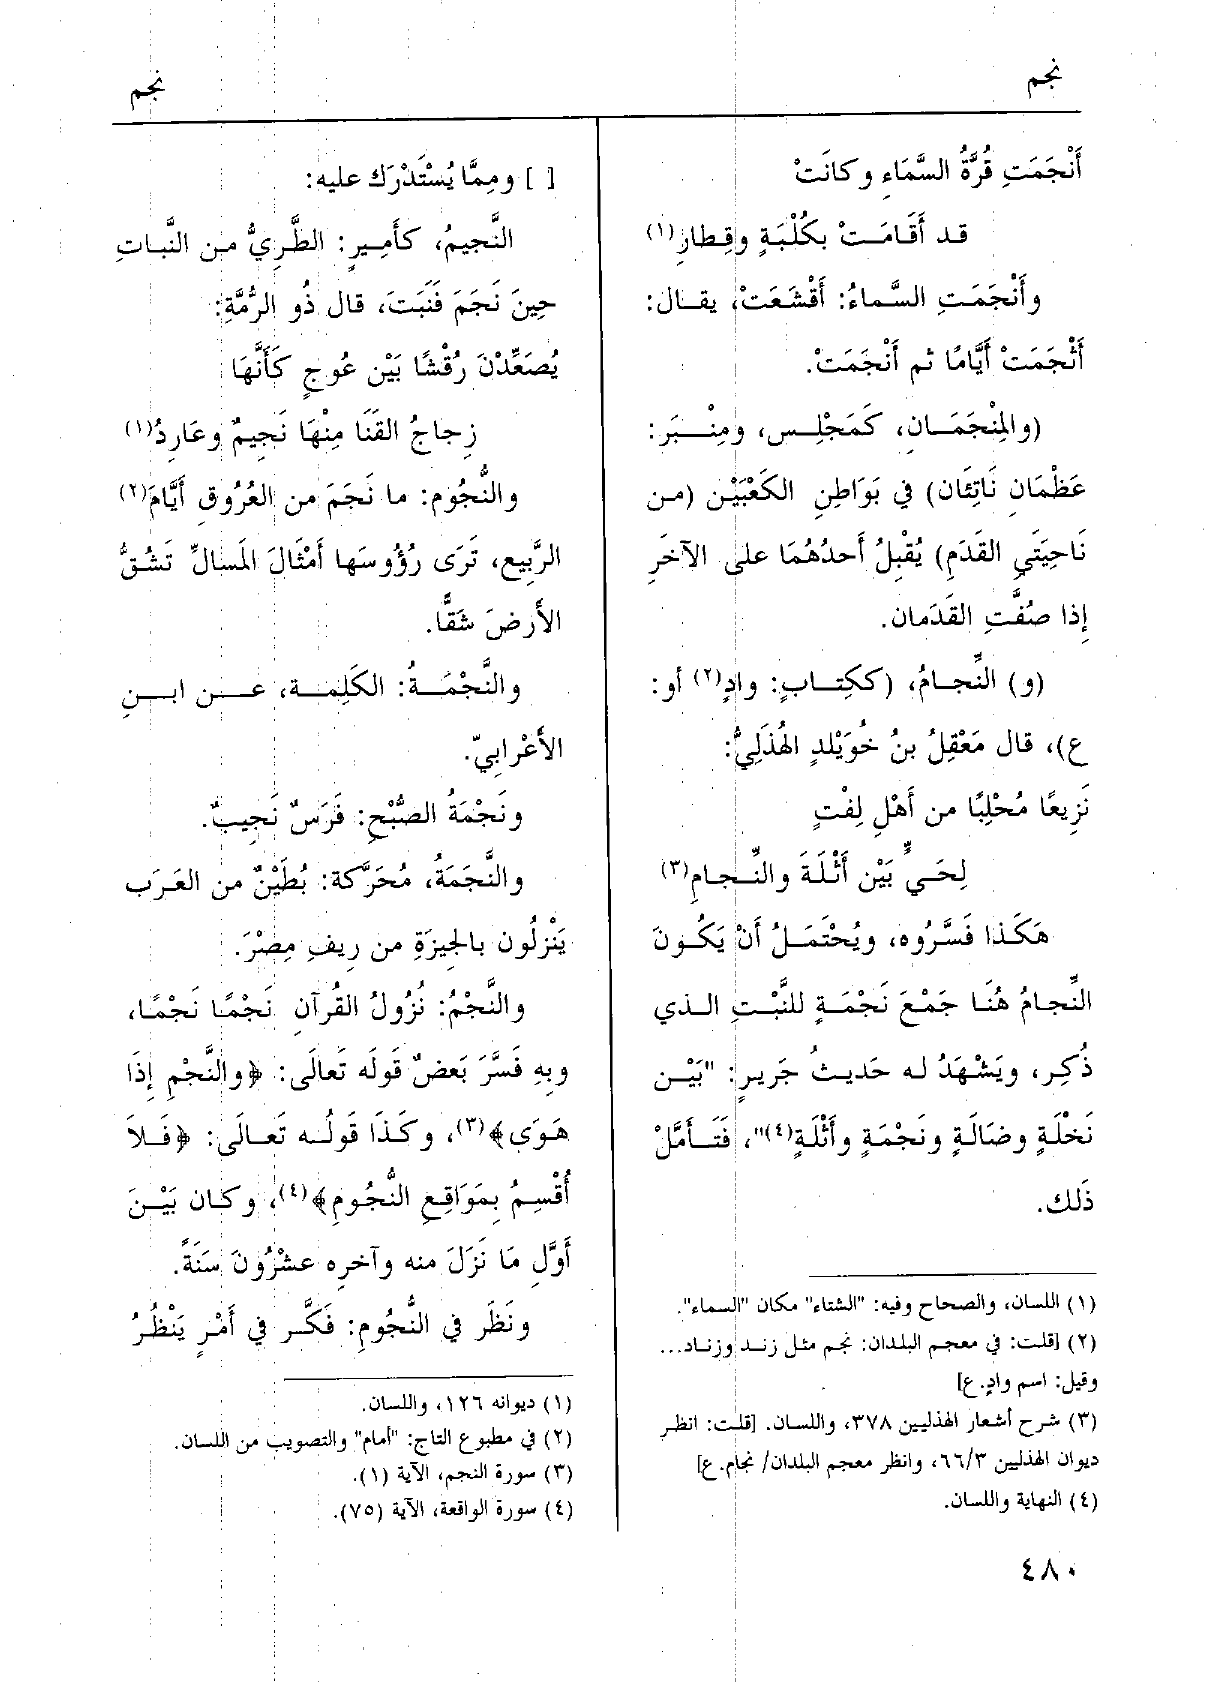 نجم
نجم
أَنْجَمَتِ قُرَّةُ السَّمَاءِ وكانَتْ
قد أَقَامَتْ بكُلْبَةٍ وقِطارِ(١)
وأَنْجَمَتِ السَّماءُ: أَقْشَعَتْ، يقال:
أَثْجَمَتْ أَيَّامًا ثم أَنْجَمَتْ.
(والمِنْجَمَان، كَمَجْلِس، ومِنْبَر:
عَظْمَانِ نَاتِئَان) في بَوَاطِنِ الكَعْبَيْن (من
نَاحِيَتَيِ القَدَمِ) يُقْبِلُ أَحدُهُمَا على الآخَرِ
إِذا صُفَّتِ القَدَمان.
(و) النِّجامُ، (ككِتابٍ: وادٍ(٢) أو:
ع)، قال مَعْقِلُ بنُ خُوَيْلدٍ الهُذَلِيُّ:
نَزِيعًا مُحْلِبًا من أَهْلِ لِفْتٍ
لِحَيٍّ بَيْن أَثْلَةَ والنِّجامِ(٣)
هَكَذا فَسَّرُوه، ويُحْتَمَلُ أَنْ يَكُونَ
النِّجامُ هُنَا جَمْعَ نَجْمَةٍ للنَّبْتِ الذي
ذُكِر، ويَشْهَدُ له حَديثُ جَريرٍ: "بَيْن
نَخْلَةٍ وضَالَةٍ ونَجْمَةٍ وأَثْلَةٍ(٤)"، فَتَأَمَّلْ
ذَلك.
(١) اللسان، والصحاح وفيه: "الشتاء" مكان "السماء".
(٢) [قلت: في معجم البلدان: نجم مثل زند وزناد...
وقيل: اسم وادٍ. ع]
(٣) شرح أشعار الهذليين ٣٧٨، واللسان. [قلت: انظر
ديوان الهذليين ٦٦/٣، وانظر معجم البلدان/ نجام. ع]
(٤) النهاية واللسان.
[ ] ومِمَّا يُسْتَدْرَك عليه:
النَّجيمُ، كأَمِيرٍ: الطَّرِيُّ من النَّباتِ
حِينَ نَجَمَ فَنَبَتَ، قال ذُو الرُّمَّةِ:
يُصَعِّدْنَ رُقْشًا بَيْن عُوجٍ كَأَنَّهَا
زِجاجُ القَنَا مِنْهَا نَجِيمٌ وعَارِدُ(١)
والنُّجُوم: ما نَجَمَ من العُرُوقِ أَيَّامَ(٢)
الرَّبِيع، تَرَى رُؤُوسَها أَمْثَالَ المَسالِّ تَشُقُّ
الأَرضَ شَقًّا.
والنَّجْمَةُ: الكَلِمة، عن ابنِ
الأَعْرابِيّ.
ونَجْمَةُ الصُّبْحِ: فَرَسٌ نَجِيبٌ.
والنَّجَمَةُ، مُحَرَّكة: بُطَيْنٌ من العَرَب
يَنْزِلُون بالجِيزَةِ من رِيفِ مِصْرَ.
والنَّجْمُ: نُزُولُ القُرآنِ نَجْمًا نَجْمًا،
وبِهِ فَسَّرَ بَعضٌ قَولَه تَعالَى: ﴿والنَّجْمِ إِذَا
هَوَى﴾(٣)، وكَذَا قَولُه تَعالَى: ﴿فَلاَ
أُقْسِمُ بِمَوَاقِعِ النُّجُومِ﴾(٤)، وكان بَيْنَ
أَوَّلِ مَا نَزَلَ منه وآخرِه عشْرُونَ سَنَةً.
ونَظَر في النُّجُومِ: فَكَّر في أَمْرٍ يَنْظُرُ
(١) ديوانه ١٢٦، واللسان.
(٢) في مطبوع التاج: "أمام" والتصويب من اللسان.
(٣) سورة النجم، الآية (١).
(٤) سورة الواقعة، الآية (٧٥).
٤٨٠